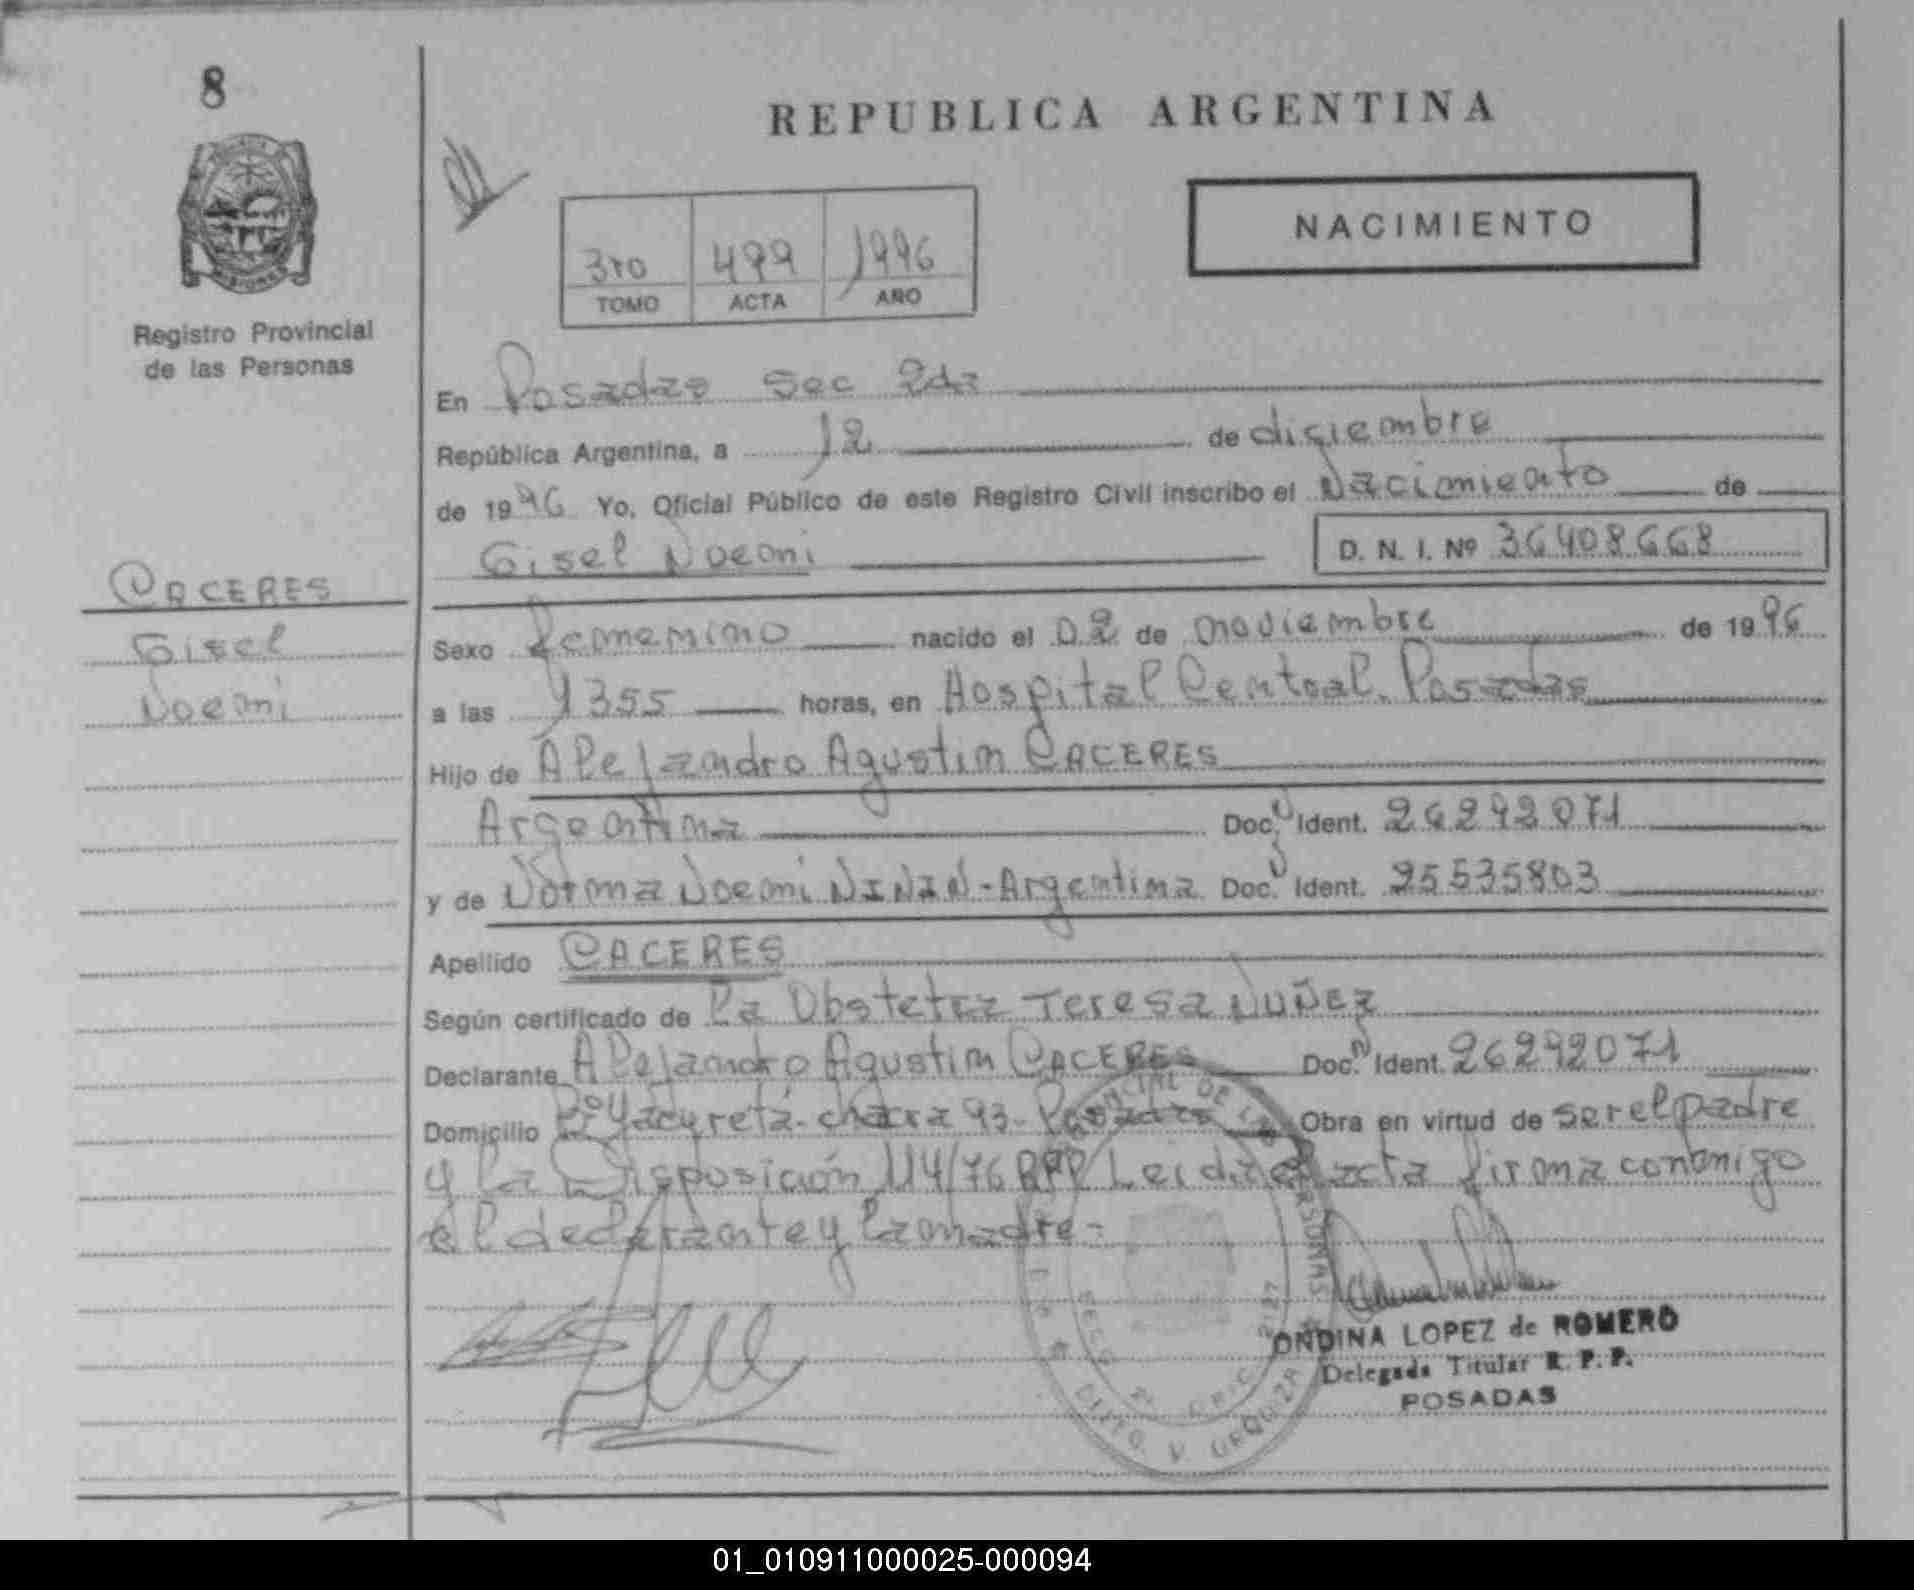 8
REPUBLICA ARGENTINA
NACIMIENTO
3ro 499 1996
TOMO ACTA AÑO
Registro Provincial
de las Personas
En Posadas sec 2da
República Argentina, a 12 de diciembre
de 1996 Yo, Oficial Público de este Registro Civil inscribo el Nacimiento de
Gisel Noemi D. N. I. Nº 36408668
CACERES
Gisel
Noemi
Sexo femenino nacido el 02 de noviembre de 1996
a las 1355 horas, en Hospital Central. Posadas
Hijo de Alejandro Agustin CACERES
Argentina Doc. Ident. 26292071
y de Norma Noemi NININ - Argentina Doc. Ident. 25535803
Apellido CACERES
Según certificado de la Obstetra Teresa NUÑEZ
Declarante Alejandro Agustin CACERES Doc. Ident. 26292071
Domicilio Bº Yacyretá - chacra 93 - Posadas Obra en virtud de ser el padre
y la Disposición 114/76 RPP Leida el acta firma conmigo
el declarante y la madre -
ONDINA LOPEZ de ROMERO
Delegada Titular R. P. P.
POSADAS
01_010911000025-000094